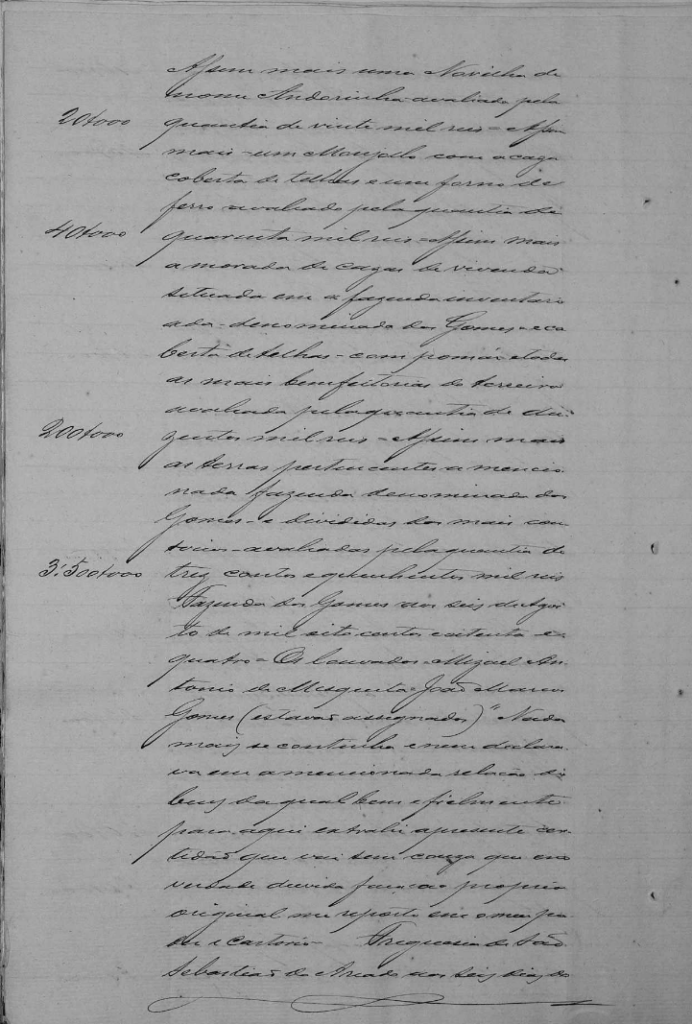 Assim mais uma Novilha de
nome Andorinha avaliada pela
20$000 quantia de vinte mil reis - Assim
mais - um Monjollo com a caza
coberta de telhas e um forno de
ferro avaliado pela quantia de
40$000 quarenta mil reis - Assim mais
a morada de cazas de vivenda
situada em a fazenda inventari
ada - denominada dos Gomes - e co
berta de telhas - com pomár e todas
as mais bemfeitorias do terreiro
avaliada pela quantia de du
200$000 zentos mil reis - Assim mais
as terras pertencentes a mencio
nada fazenda denominada dos
Gomes - e divididas dos mais con
socios - avaliadas pela quantia de
3:500$000 trez contos e quinhentos mil reis
Fazenda dos Gomes aos seis de Agos
to de mil oito centos e oitenta e
quatro - Os louvados - Miguel An
tonio de Mesquita - João Marcos
Gomes (estavão assignados) " Nada
mais se continha e nem declara
va em a mencionada relação de
bens da qual bem e fielmente
para aqui extrahi a presente cer
tidão que vai sem couza que
verdade duvida faça e ao proprio
original me reporto em o meu po
der e cartorio - Freguesia de São
Sebastião do Areado aos seis dias do